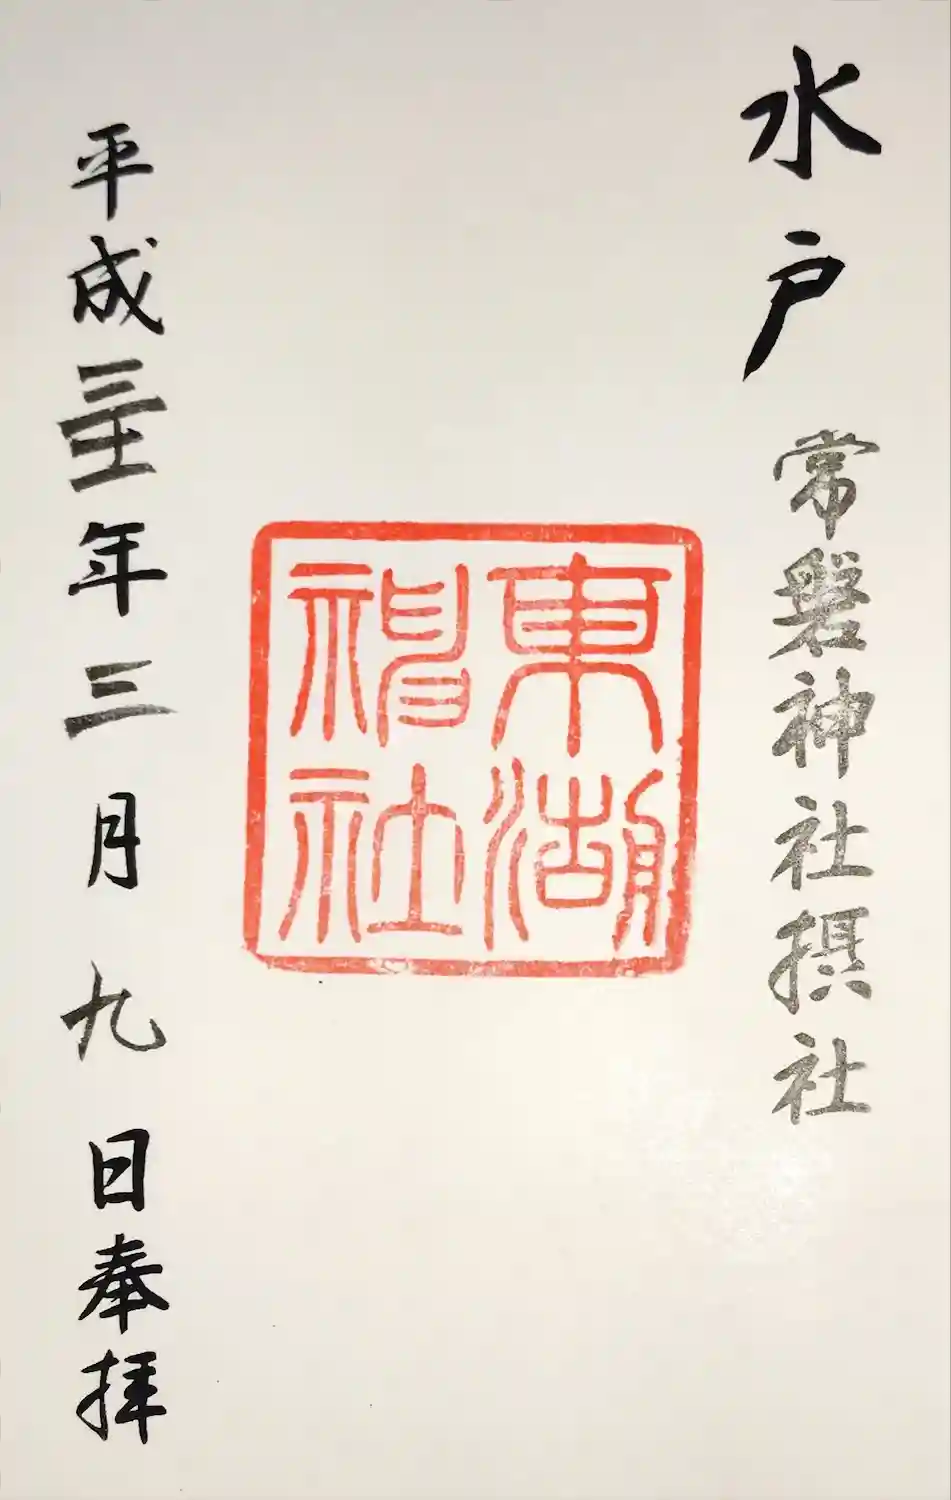 水戸 常磐神社摂社
東湖
神社
平成三十一年三月九日奉拝